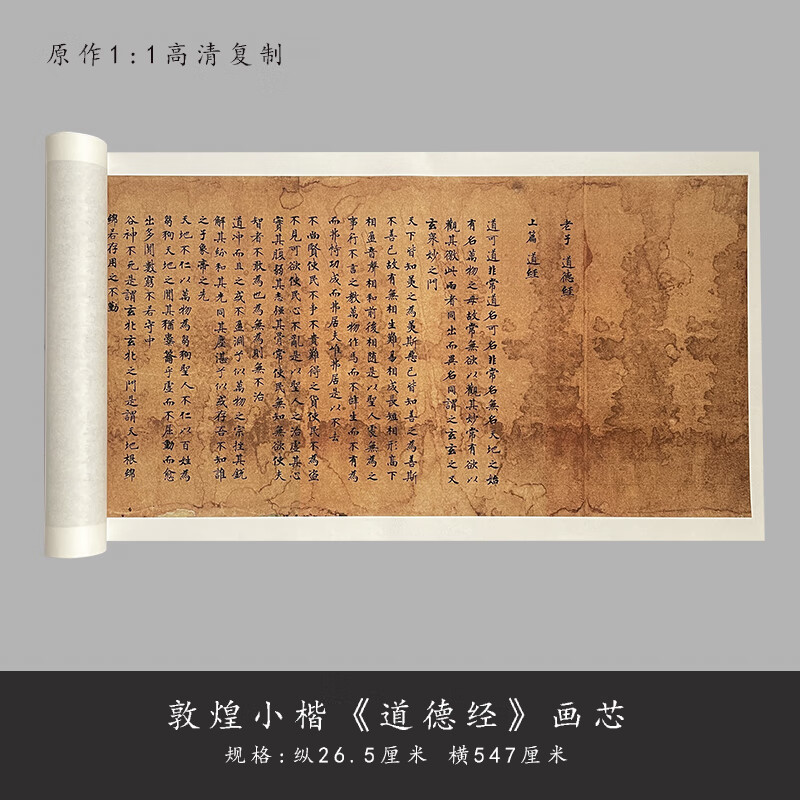 原作1:1高清复制
老子 道德经
上篇 道经
道可道非常道名可名非常名無名天地之始
有名萬物之母故常無欲以觀其妙常有欲以
觀其徼此兩者同出而異名同謂之玄玄之又
玄衆妙之門
天下皆知美之為美斯惡已皆知善之為善斯
不善已故有無相生難易相成長短相形高下
相盈音聲相和前後相隨是以聖人處無為之
事行不言之教萬物作焉而不辭生而不有為
而弗恃功成而弗居夫惟弗居是以不去
不尚賢使民不爭不貴難得之貨使民不為盜
不見可欲使民心不亂是以聖人之治虛其心
實其腹弱其志强其骨常使民無知無欲使夫
智者不敢為也為無為則無不治
道沖而用之或不盈淵乎似萬物之宗挫其銳
解其紛和其光同其塵湛乎似或存吾不知誰
之子象帝之先
天地不仁以萬物為芻狗聖人不仁以百姓為
芻狗天地之間其猶橐籥乎虛而不屈動而愈
出多聞數窮不若守中
谷神不死是謂玄牝玄牝之門是謂天地根綿
綿若存用之不勤
敦煌小楷《道德经》画芯
规格:纵26.5厘米 横547厘米